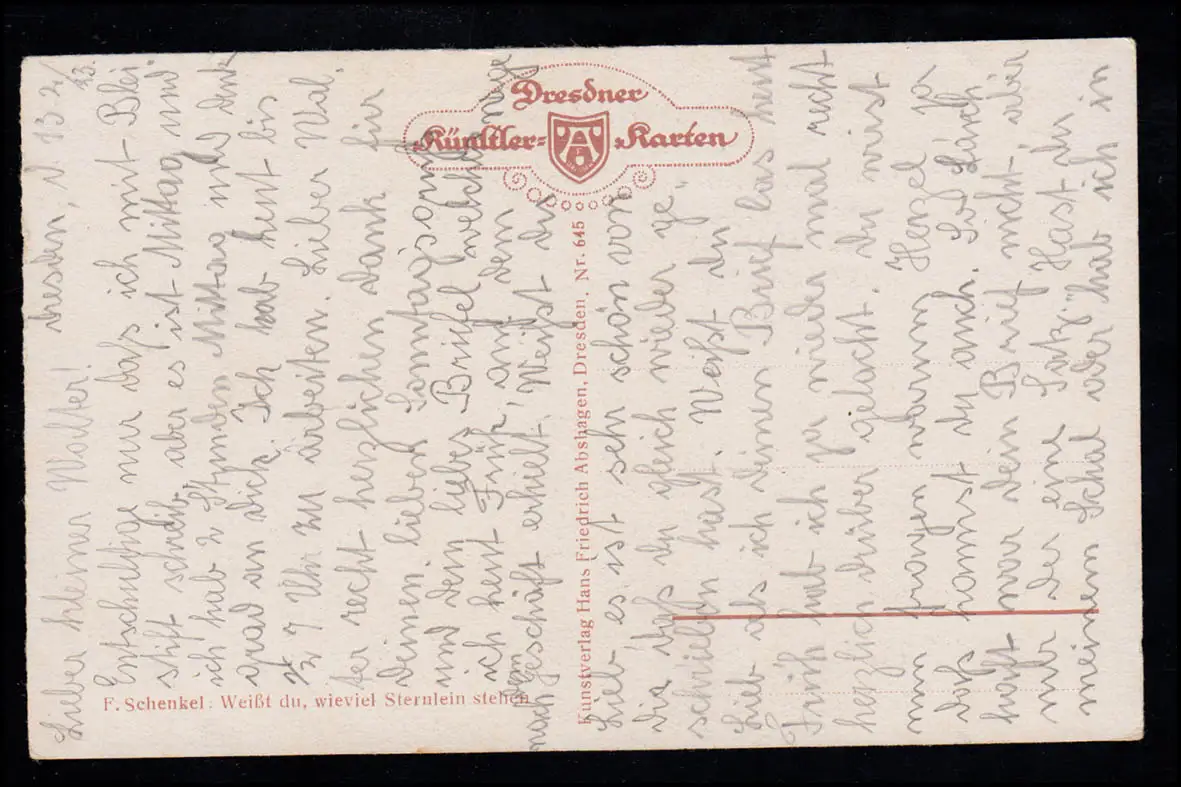 Dresdner
Künstler-Karten
F. Schenkel: Weißt du, wieviel Sternlein stehen
Kunstverlag Hans Friedrich Abshagen, Dresden. Nr. 645
Dresden, d. 13. 2.
Lieber kleiner Walter!
Entschuldige nur daß ich mit Blei-
stift schreib, aber es ist Mittag und
ich hab 2 Stunden Mittag und denk
grad an dich. Ich hab heut bis
1/2 7 Uhr zu arbeiten. Lieber Wal-
ter recht herzlichen Dank für
deinen lieben
und den lieben Briefel welche
ich heut Früh, auf dem
nach Geschäft erhielt. Weißt du
Lieb, es ist sehr schön von
dir daß du gleich wieder ge-
schrieben hast. Weißt du
Lieb als ich deinen Brief las heut
Früh hab ich ja wieder mal recht
herzlich drüber gelacht. du wirst
nun fragen warum. Henzel ja
das kannst du auch. So
hast war dein Brief nicht, aber
mit der eine Satz, Hast du
meinen Schal oder hab ich in